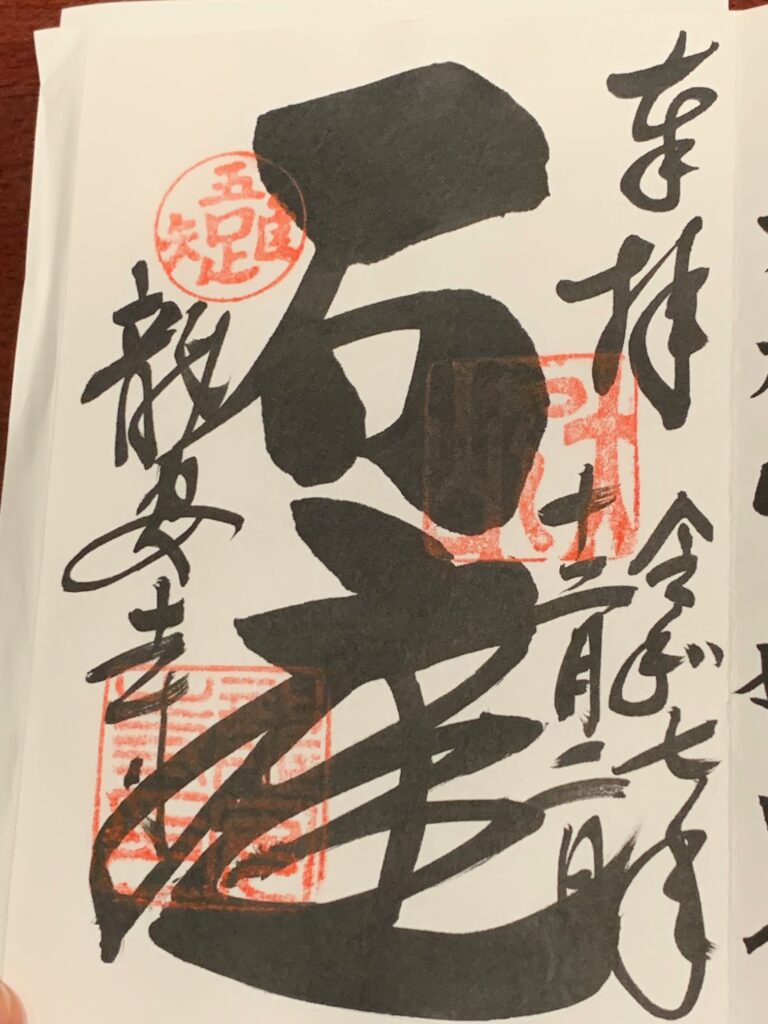 奉拝
令和七年
十二月二日
石庭
吾唯足知
龍安寺